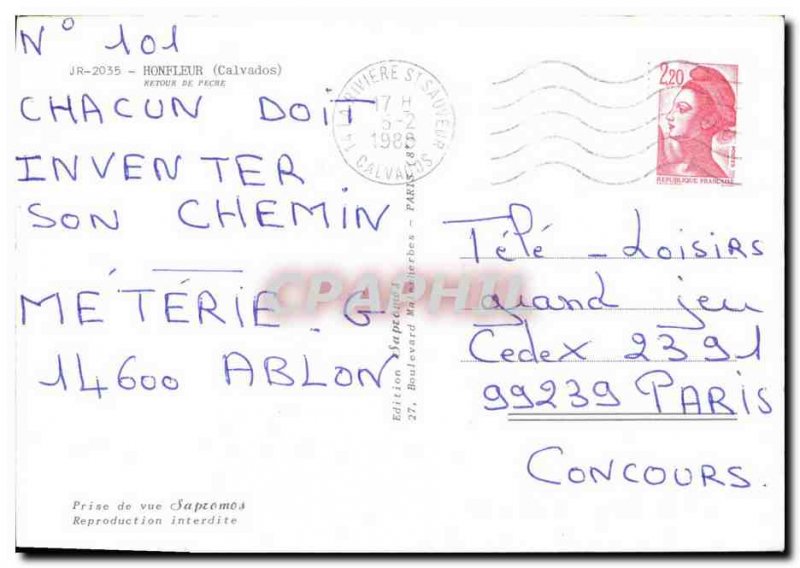 N° 101
JR-2035 - HONFLEUR (Calvados)
RETOUR DE PECHE
CHACUN DOIT
INVENTER
SON CHEMIN
MÉTÉRIE. G
14600 ABLON
Prise de vue Sapromos
Reproduction interdite
Edition Sapromos
27, Boulevard Malesherbes - PARIS
14 LA RIVIERE ST SAUVEUR
17 H
CALVADOS
2,20
POSTES
REPUBLIQUE FRANÇAISE
Télé - Loisirs
grand jeu
Cedex 2391
99239 PARIS
CONCOURS.
CPAPHIL